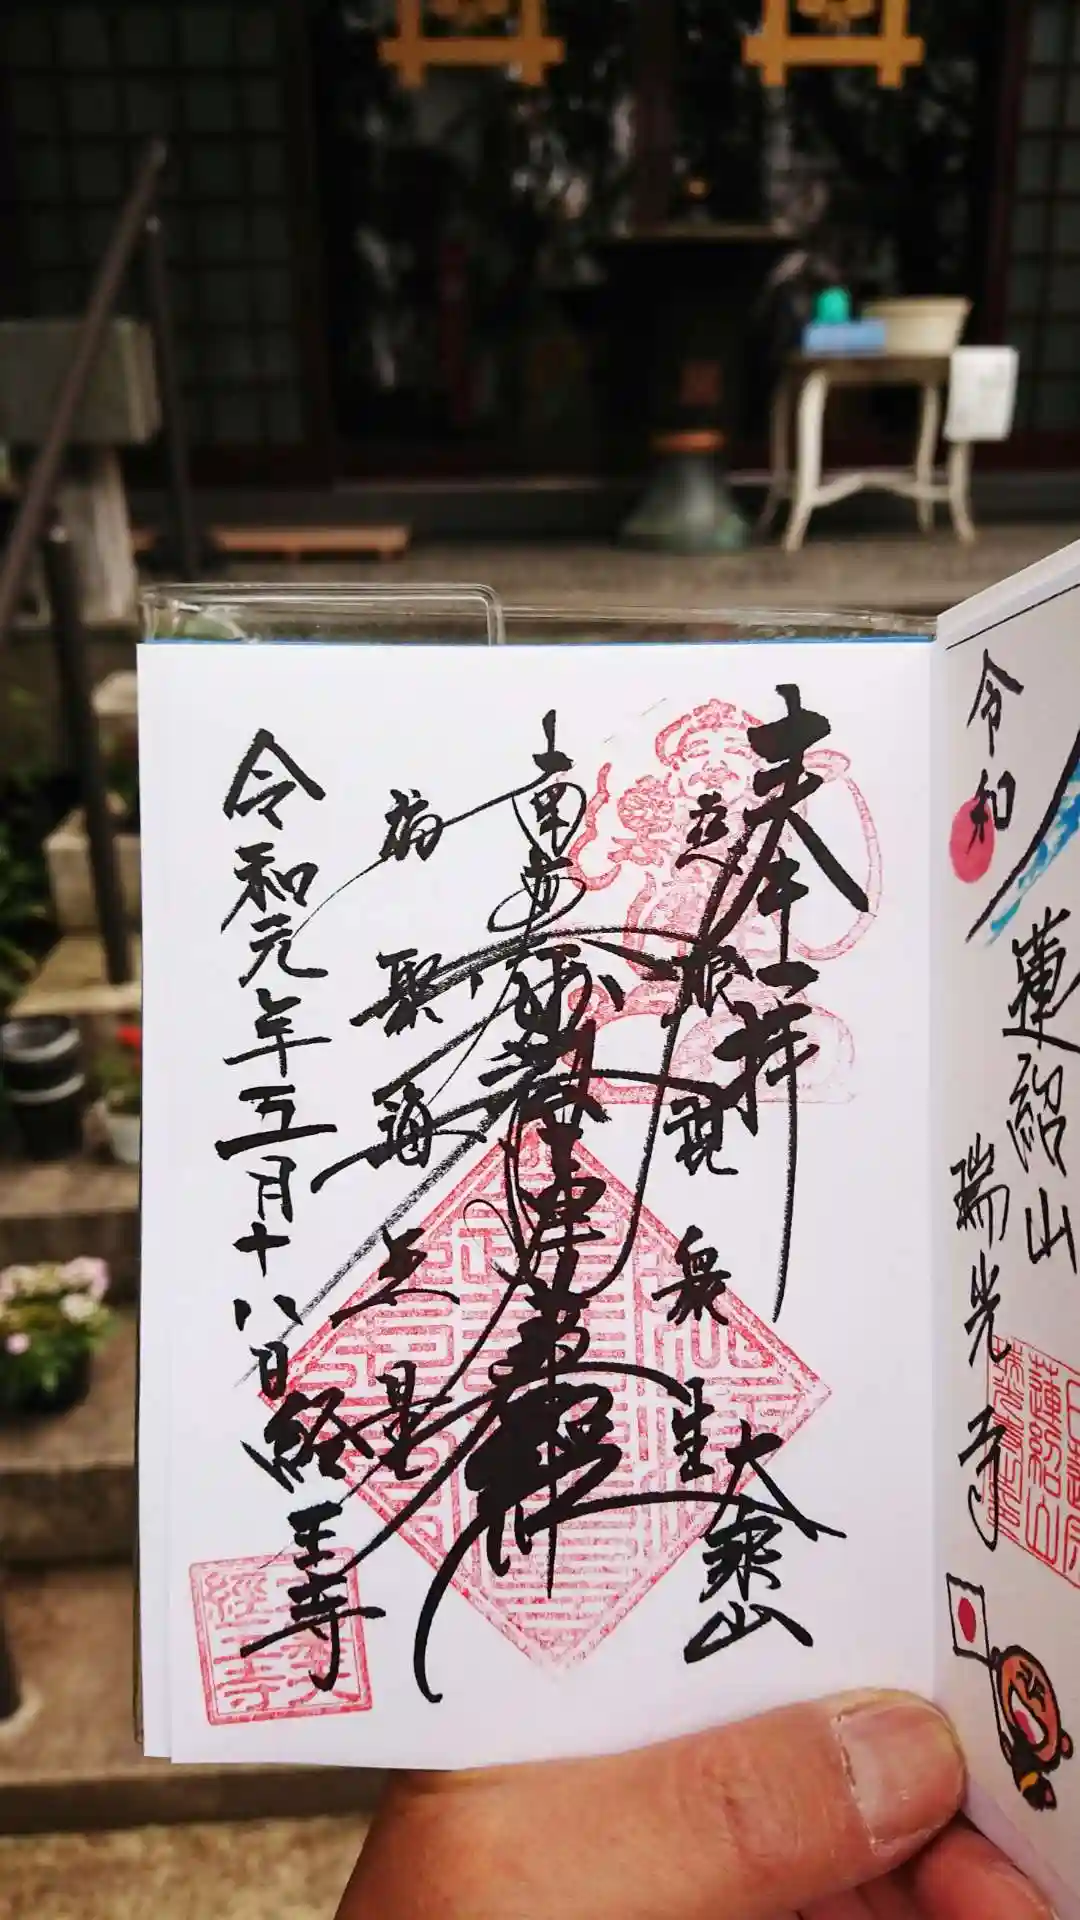 令和
蓮紹山
瑞光寺
蓮紹山
奉拝
大乗山
慈眼視衆生
南無妙法蓮華経
福聚海無量
令和元年五月十八日
経王寺
經王寺